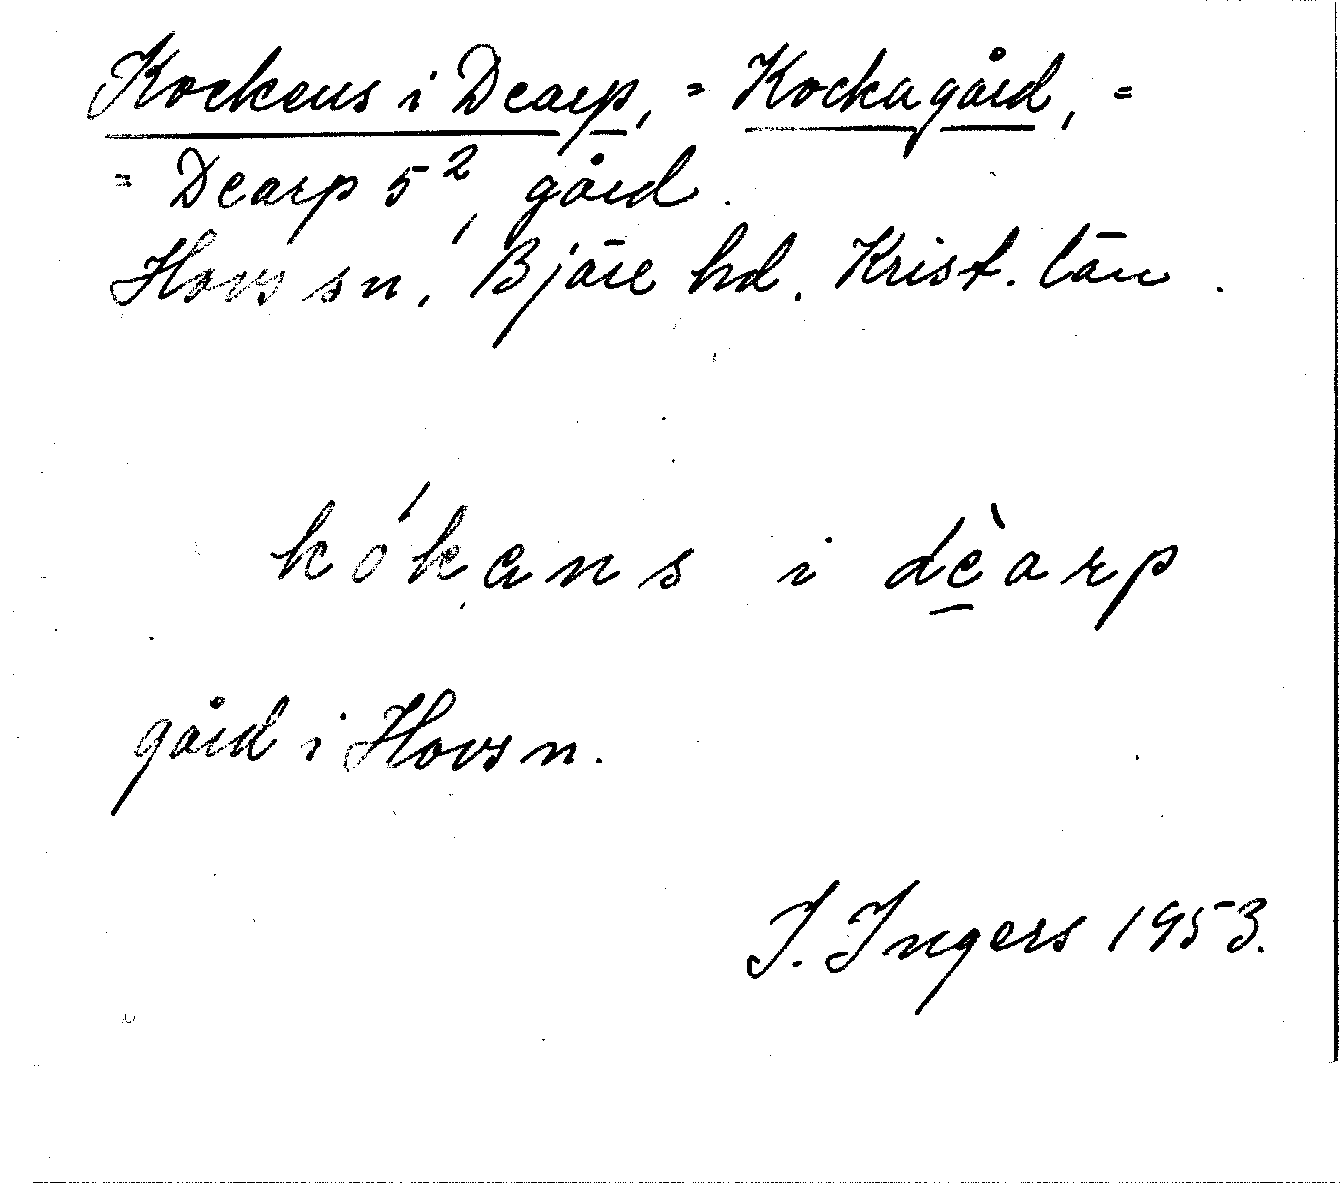 Kockens i Dearp, = Kockagård, =
= Dearp 5², gård.
Hovs sn, Bjäre hd. Krist. län.
kókans i dèarp
gård i Hovs n.
I. Ingers 1953.